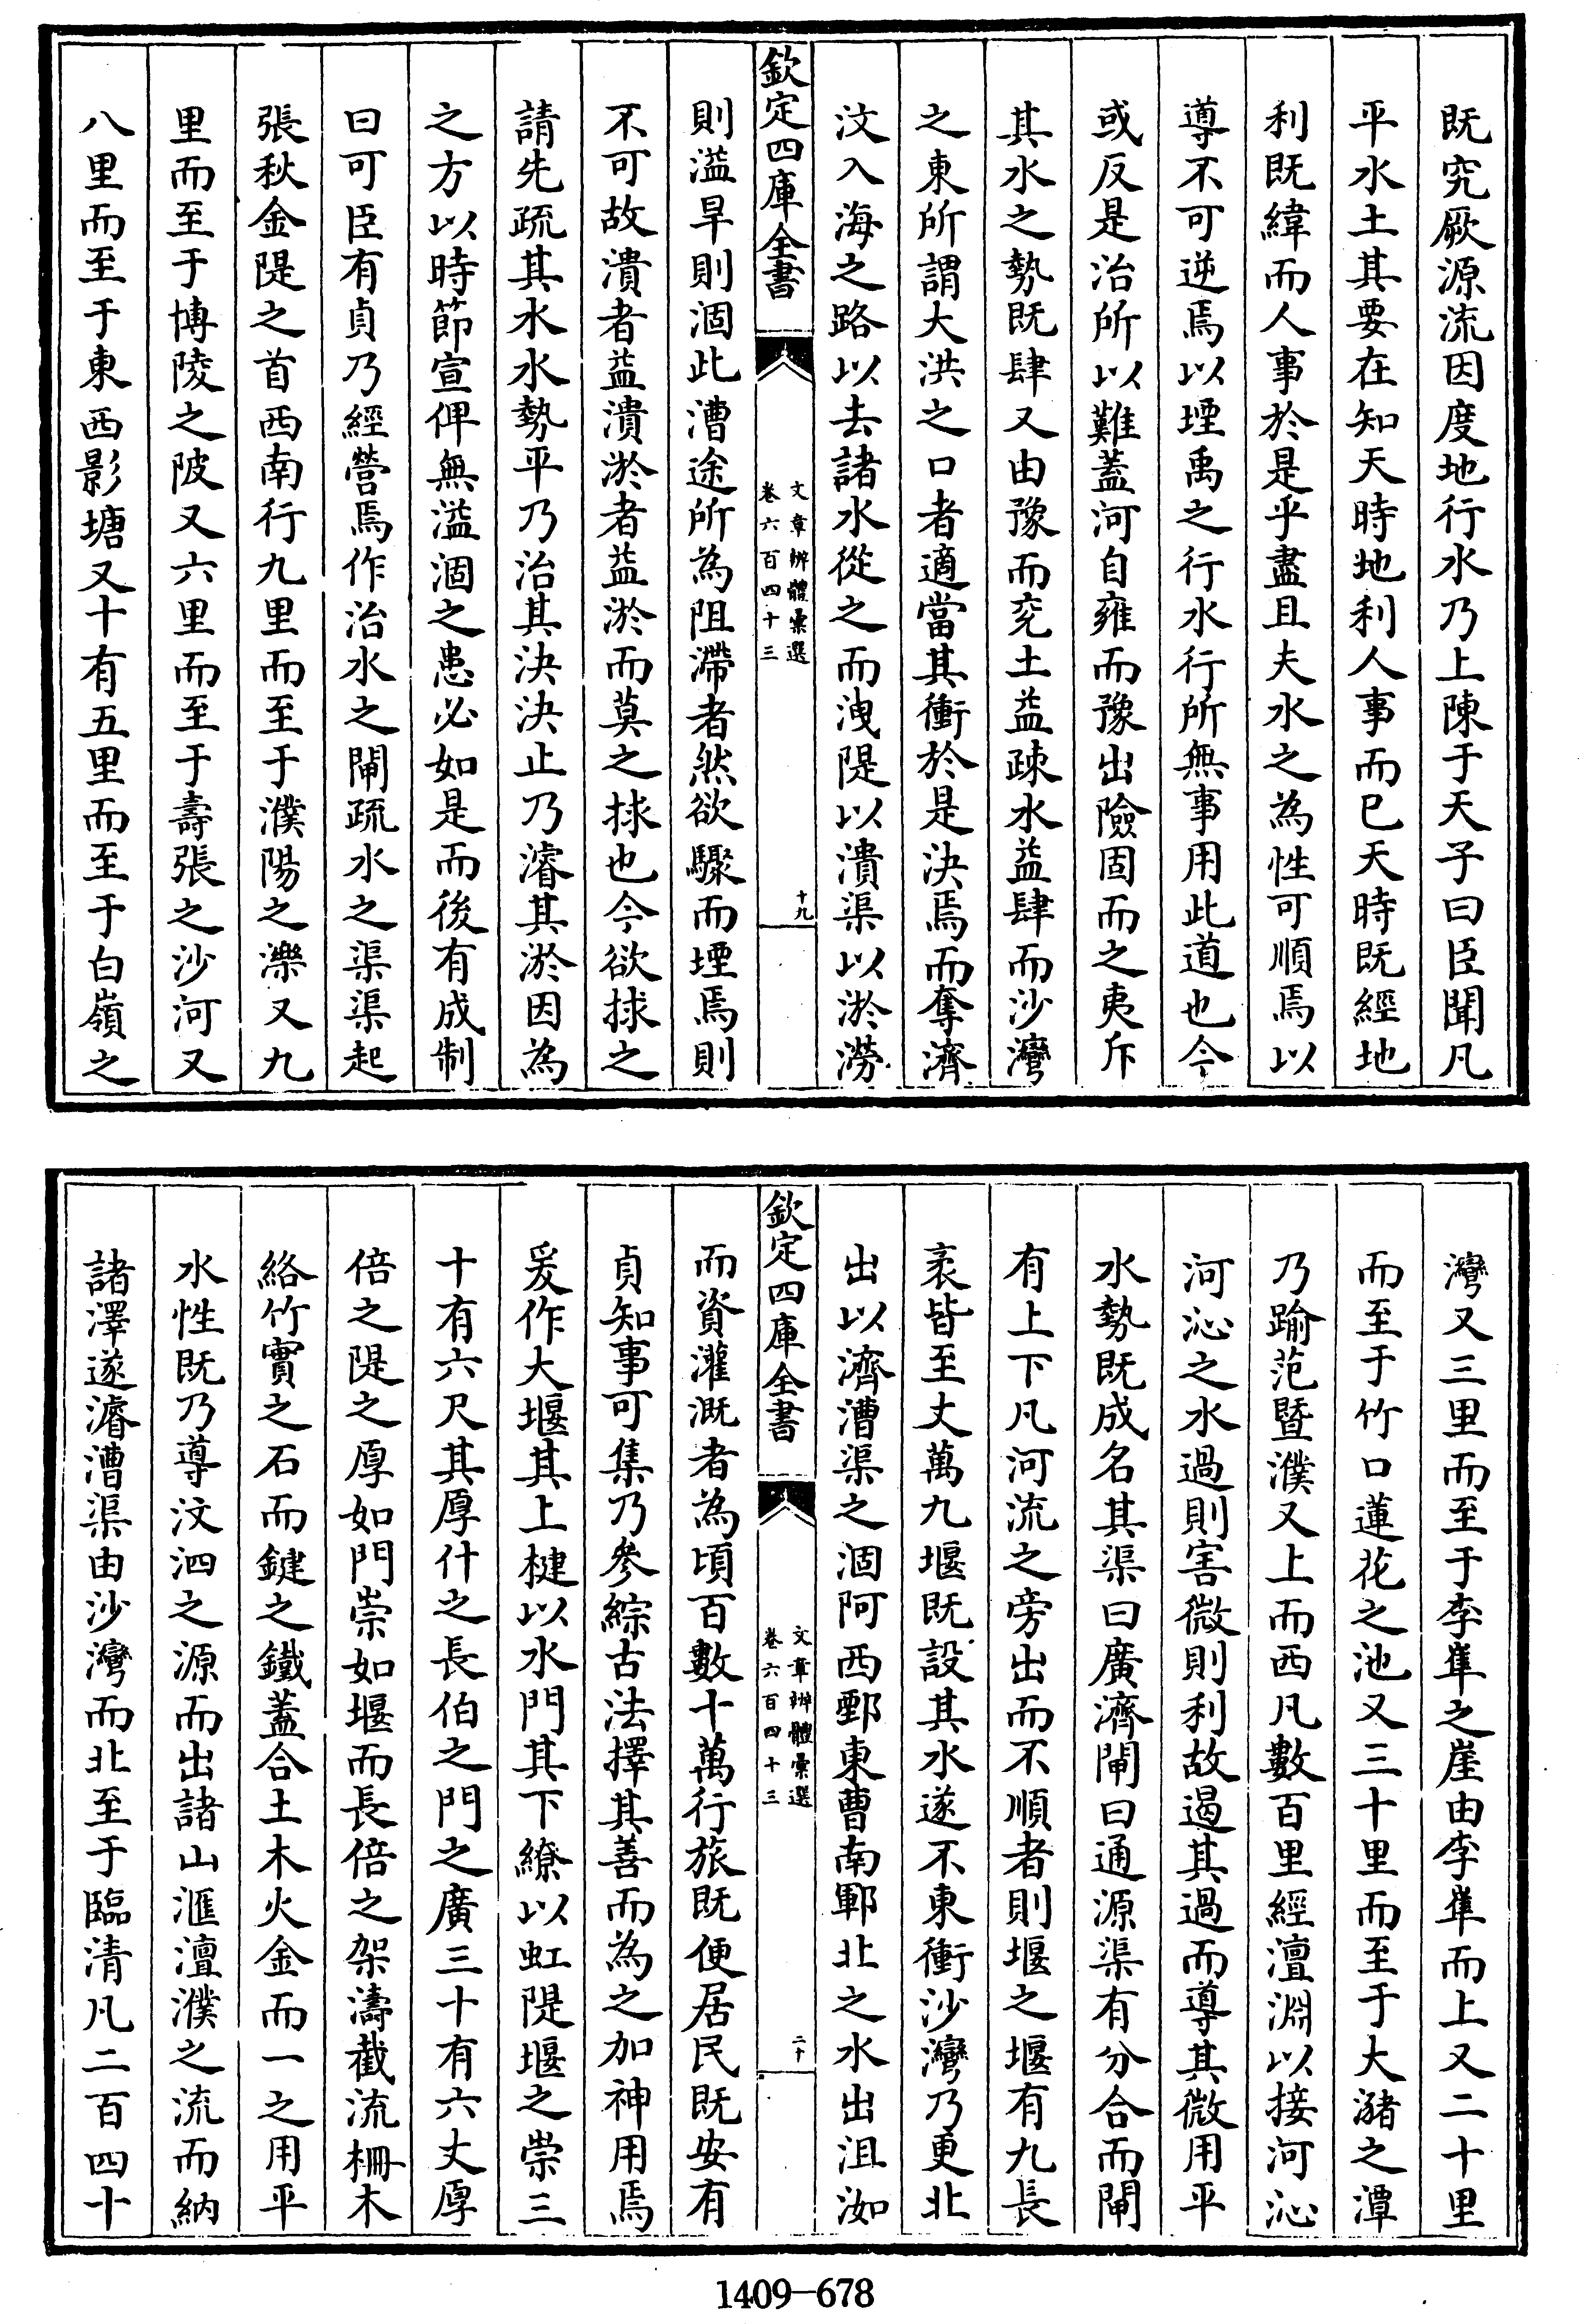 既究厥源流因度地行水乃上陳于天子曰臣聞凡
平水土其要在知天時地利人事而已天時既經地
利既緯而人事於是乎盡且夫水之為性可順焉以
導不可逆焉以堙禹之行水行所無事用此道也今
或反是治所以難蓋河自雍而豫出險固而之夷斥
其水之勢既肆又由豫而兖土益疎水益肆而沙灣
之東所謂大洪之口者適當其衝於是決焉而奪濟
汶入海之路以去諸水從之而洩隄以潰渠以淤澇
欽定四庫全書
文章辨體彙選
卷六百四十三
十九
則溢旱則涸此漕途所為阻滯者然欲驟而堙焉則
不可故潰者益潰淤者益淤而莫之捄也今欲捄之
請先疏其水水勢平乃治其決決止乃濬其淤因為
之方以時節宣俾無溢涸之患必如是而後有成制
曰可臣有貞乃經營焉作治水之閘疏水之渠渠起
張秋金隄之首西南行九里而至于濮陽之濼又九
里而至于博陵之陂又六里而至于壽張之沙河又
八里而至于東西影塘又十有五里而至于白嶺之
灣又三里而至于李䧹之崖由李䧹而上又二十里
而至于竹口蓮花之池又三十里而至于大瀦之潭
乃踰范暨濮又上而西凡數百里經澶淵以接河沁
河沁之水過則害微則利故遏其過而導其微用平
水勢既成名其渠曰廣濟閘曰通源渠有分合而閘
有上下凡河流之旁出而不順者則堰之堰有九長
袤皆至丈萬九堰既設其水遂不東衝沙灣乃更北
出以濟漕渠之涸阿西鄄東曹南鄆北之水出沮洳
欽定四庫全書
文章辨體彙選
卷六百四十三
二十
而資灌溉者為頃百數十萬行旅既便居民既安有
貞知事可集乃參綜古法擇其善而為之加神用焉
爰作大堰其上楗以水門其下繚以虹隄堰之崇三
十有六尺其厚什之長伯之門之廣三十有六丈厚
倍之隄之厚如門崇如堰而長倍之架濤截流柵木
絡竹實之石而鍵之鐵蓋合土木火金而一之用平
水性既乃導汶泗之源而出諸山滙澶濮之流而納
諸澤遂濬漕渠由沙灣而北至于臨清凡二百四十
1409—678